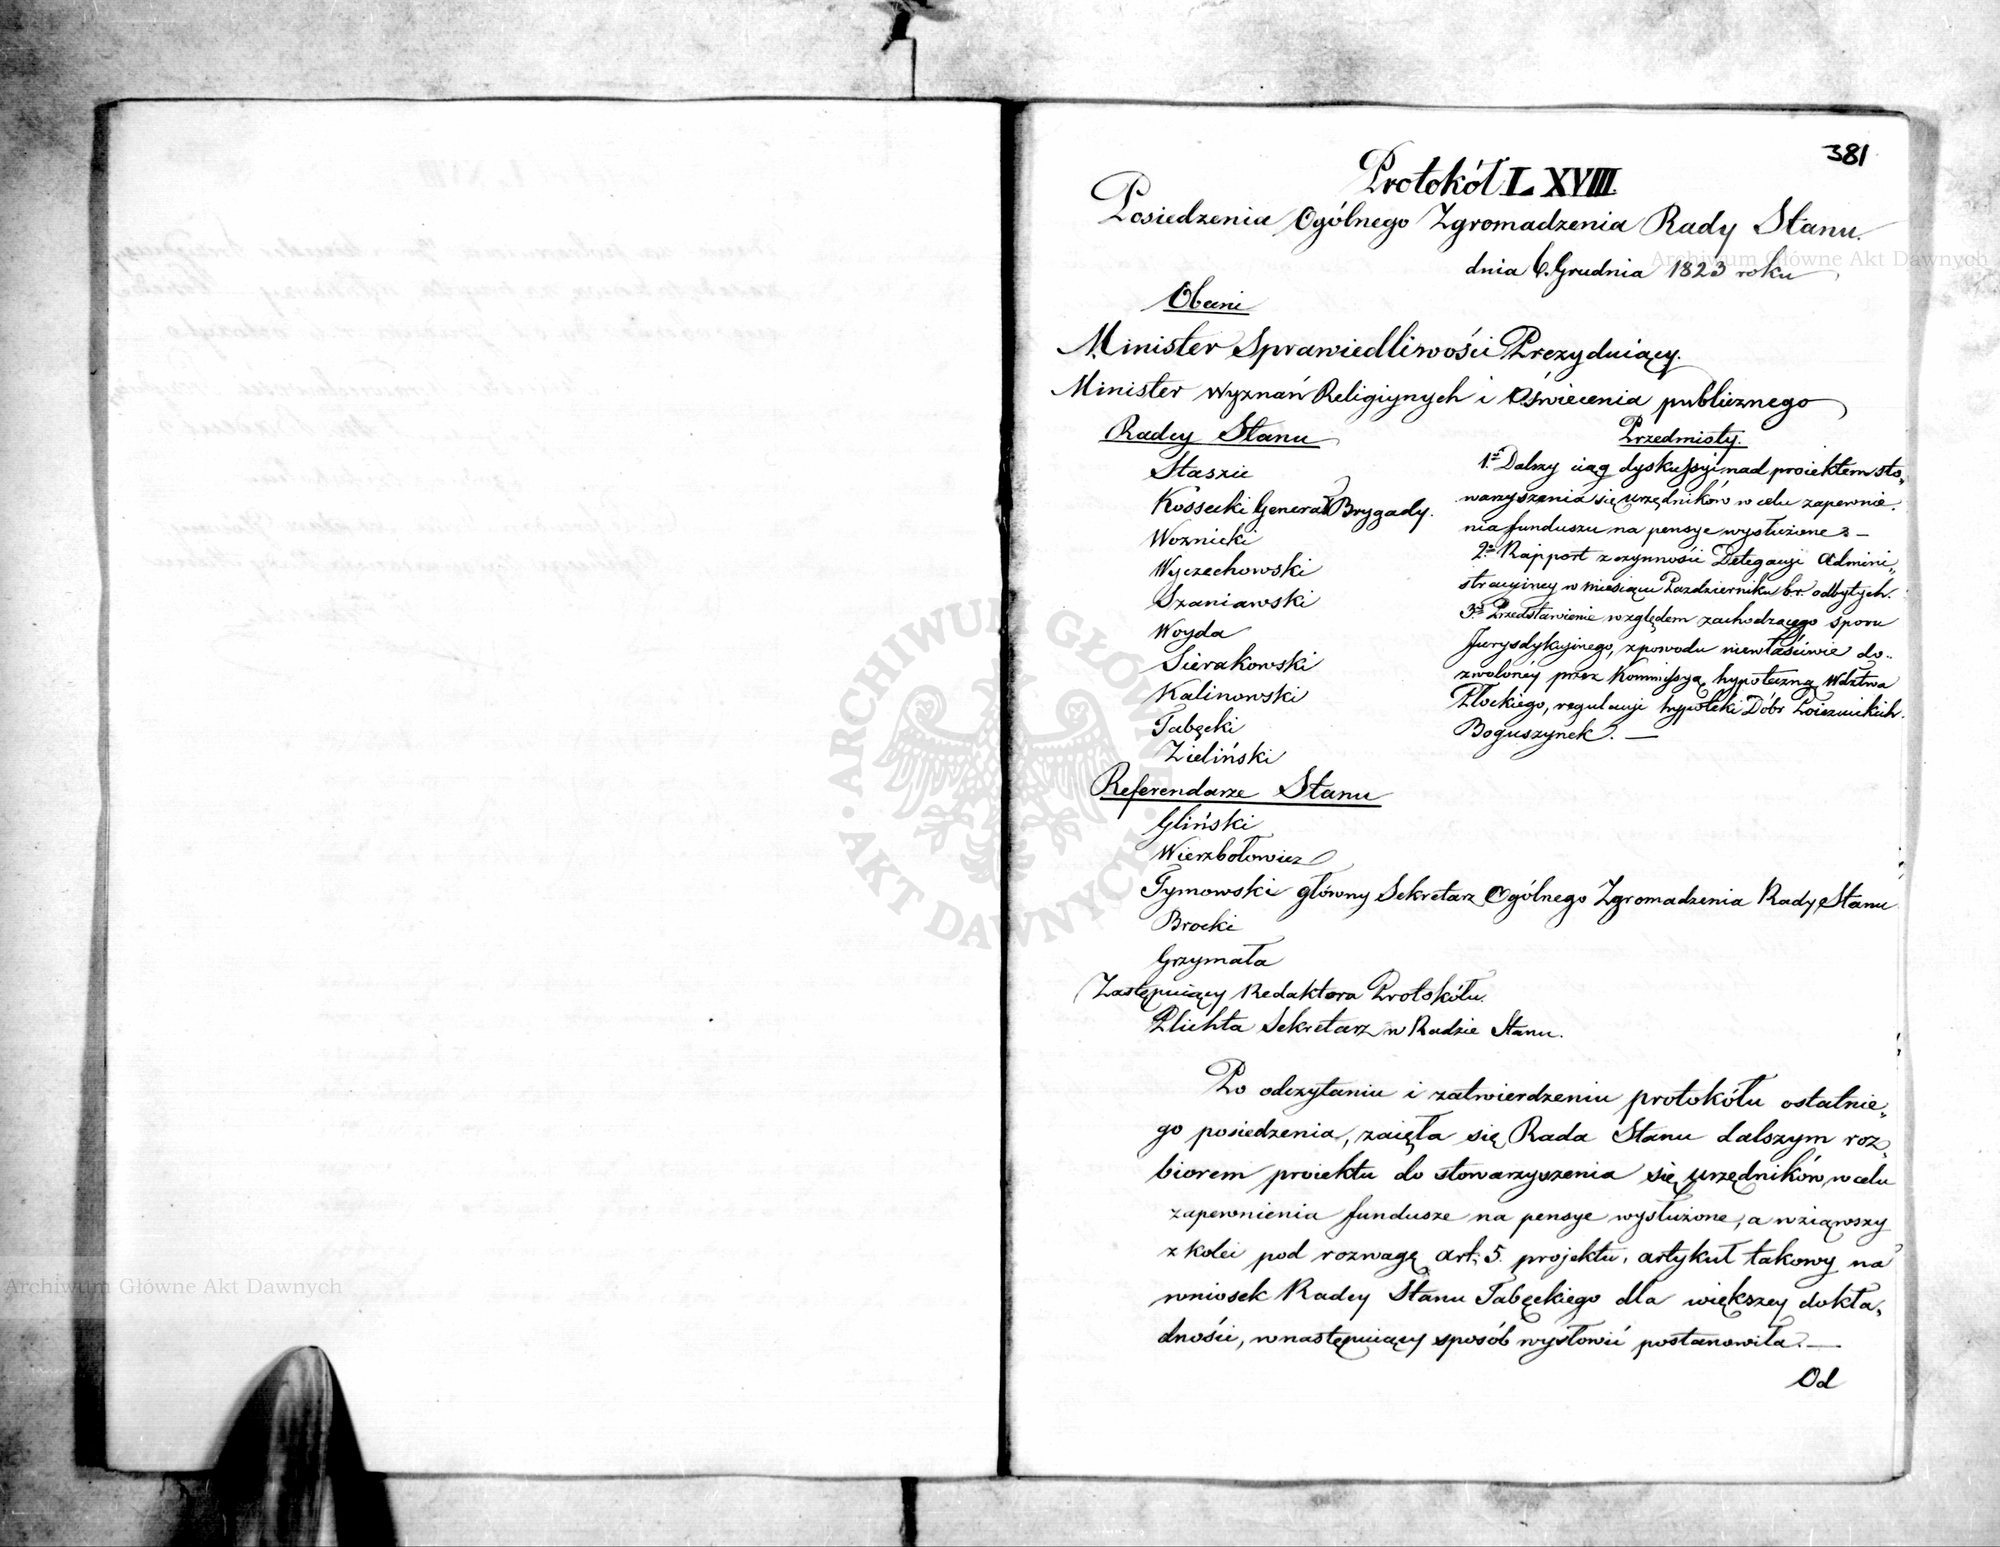 381
Protokół LXVIII.
Posiedzenia Ogólnego Zgromadzenia Rady Stanu.
dnia 6. Grudnia 1823 roku
Obecni
Minister Sprawiedliwości Prezyduiący.
Minister Wyznań Religiynych i Oświecenia publicznego
Radcy Stanu
Staszic
Kossecki Generał Brygady.
Woznicki
Wyczechowski
Szaniawski
Woyda
Sierakowski
Kalinowski
Tabęcki
Zieliński
Przedmioty.
1.° Dalszy ciąg dyskussyi nad proiektem sto„
warzyszenia się urzędników w celu zapewnie.
nia funduszu na pensye wysłużone. —
2.° Rapport z czynności Delegacyi Admini„
stracyiney w miesiącu Pazdzierniku b.r. odbytych.
3.° Przedstawienie względem zachodzącego sporu
Jurysdykcyinego, z powodu niewłaściwie do„
zwolonéy przez Kommissyą hypoteczną Wdztwa
Płockiego, regulacyi hypoteki Dóbr Poiezuickich
Boguszynek. —
Referendarze Stanu
Gliński
Wierzbołowicz
Tymowski główny Sekretarz Ogólnego Zgromadzenia Rady Stanu
Brocki
Grzymała
Zastępuiący Redaktora Protokółu.
Plichta Sekretarz w Radzie Stanu.
Po odczytaniu i zatwierdzeniu protokółu ostatnie„
go posiedzenia, zaięła się Rada Stanu dalszym roz„
biorem proiektu do stowarzyszenia się urzędników w celu
zapewnienia fundusze na pensye wysłużone, a wziąwszy
z kolei pod rozwagę art: 5. projektu, artykuł takowy na
wniosek Radcy Stanu Tabęckiego dla większey dokła„
dności, w następuiący sposób wysłowić postanowiła. —
Od
Archiwum Główne Akt Dawnych
ARCHIWUM GŁÓWNE AKT DAWNYCH
Archiwum Główne Akt Dawnych